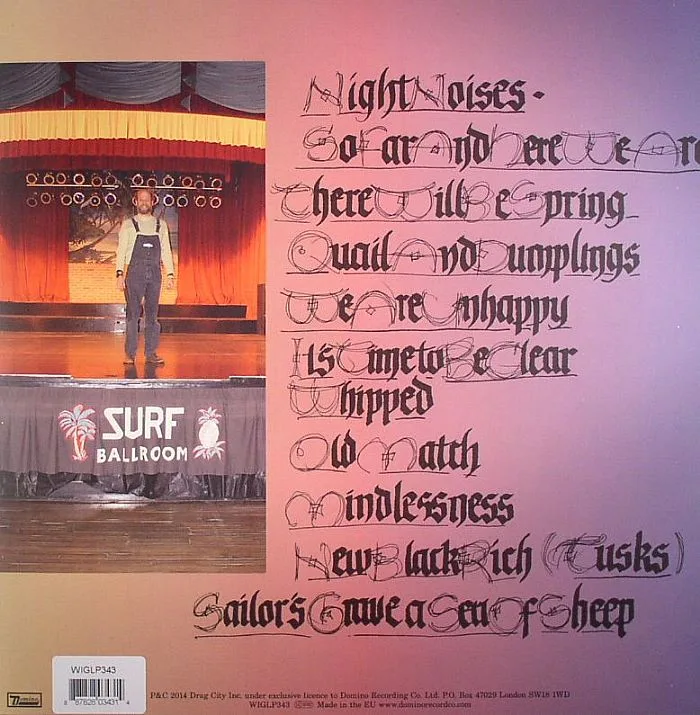 Night Noises -
So Far And Here We Are
There Will Be Spring
Quail And Dumplings
We Are Unhappy
It's Time to Be Clear
Whipped
Old Match
Mindlessness
New Black Rich (Tusks)
Sailor's Grave a Sea Of Sheep
SURF
BALLROOM
WIGLP343
8 87828 03431 4
Domino
P&C 2014 Drag City Inc. under exclusive licence to Domino Recording Co. Ltd. P.O. Box 47029 London SW18 1WD
WIGLP343 Made in the EU www.dominorecordco.com